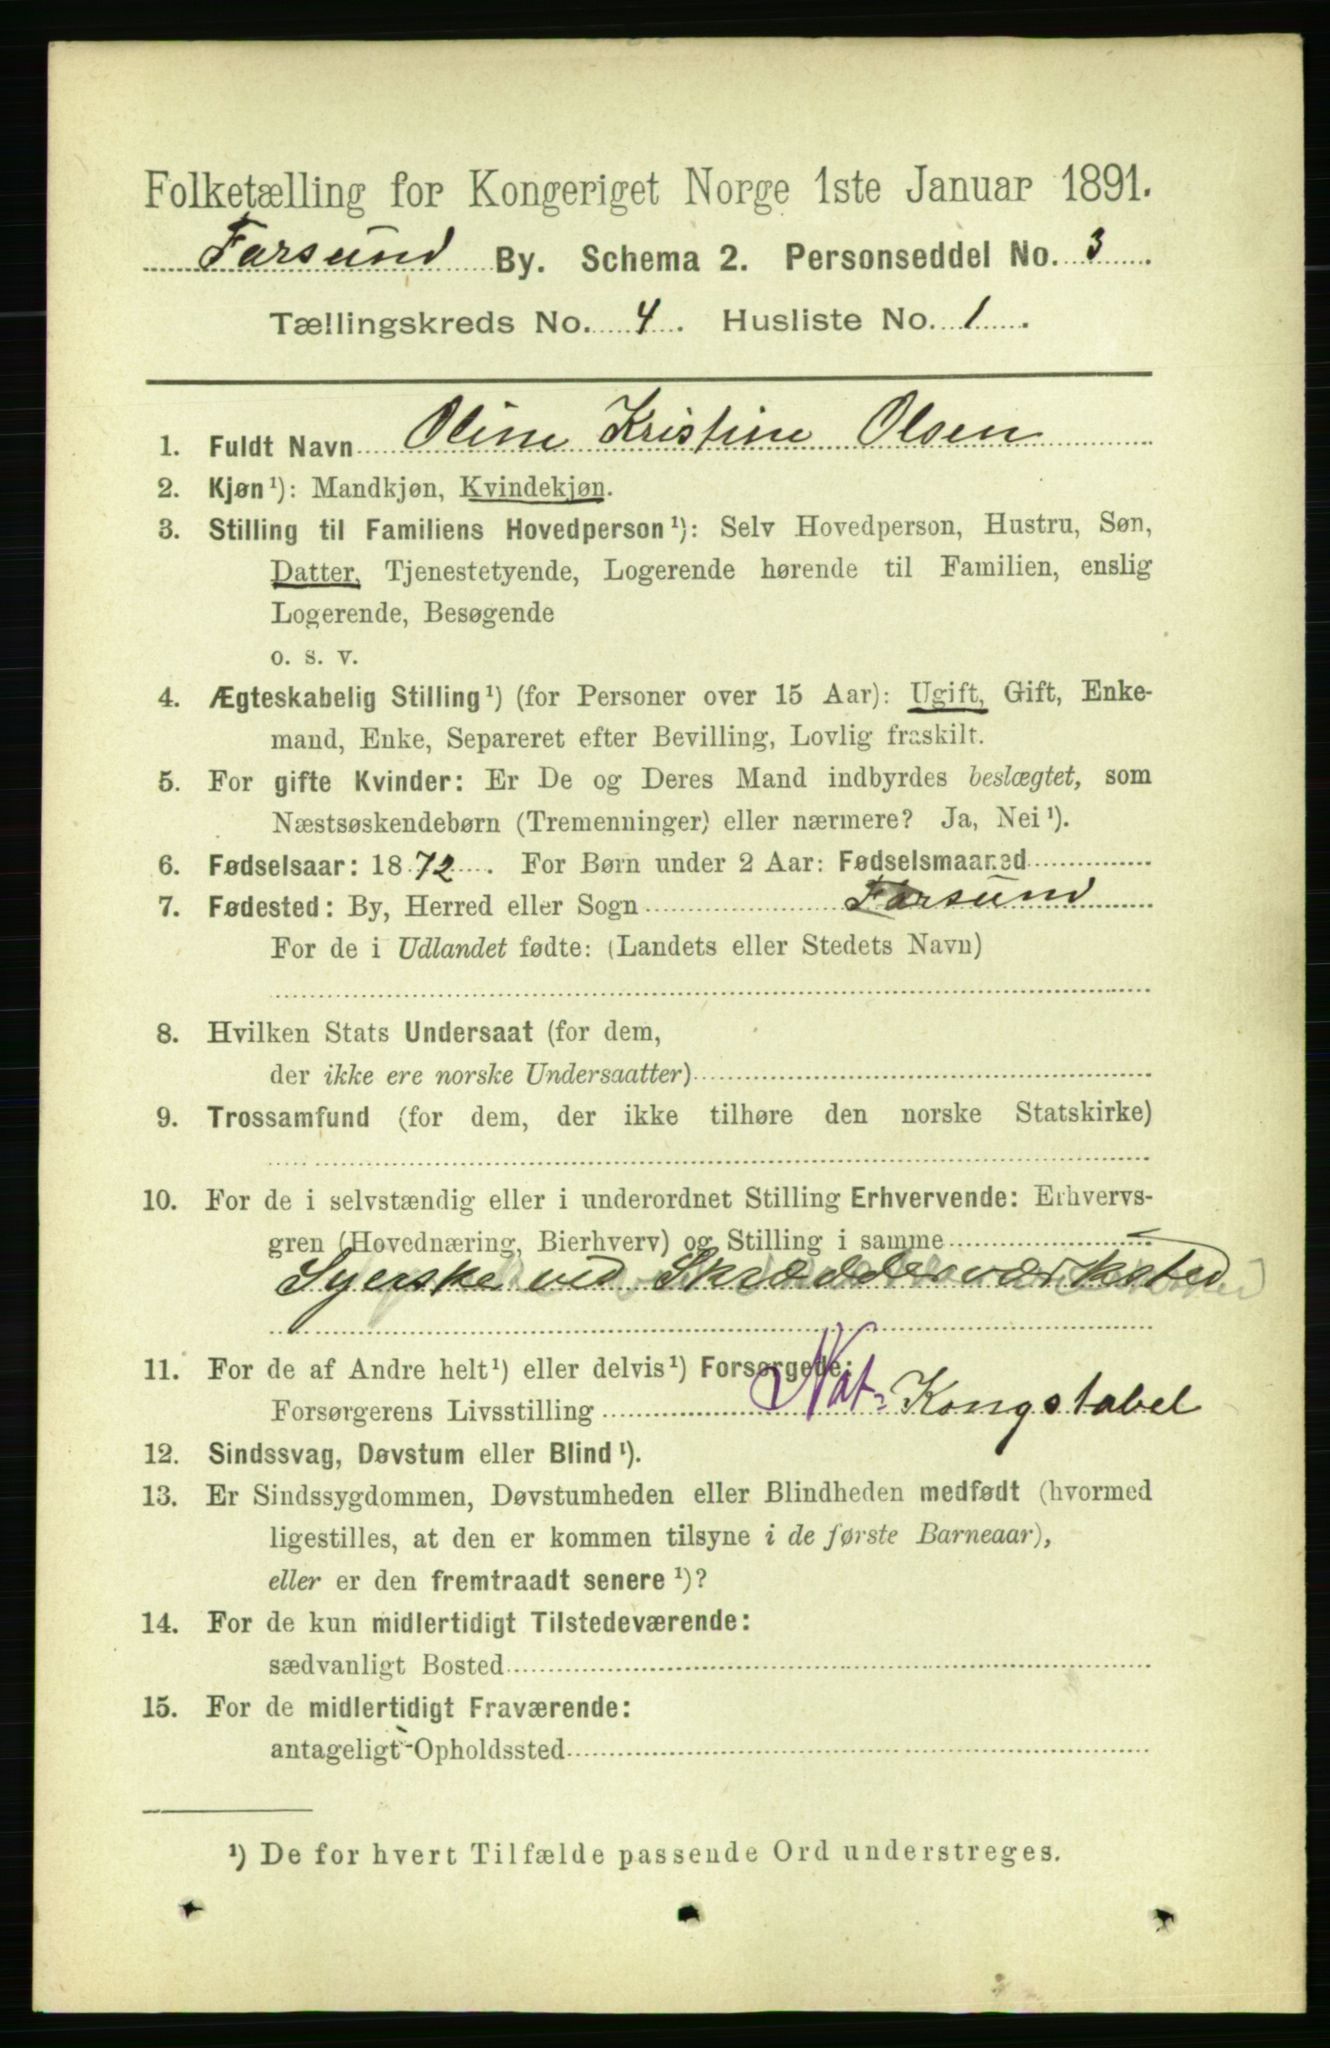 Folketælling for Kongeriget Norge 1ste Januar 1891.
Farsund By. Schema 2. Personseddel No. 3
Tællingskreds No. 4. Husliste No. 1.
1. Fuldt Navn Oline Kristine Olsen
2. Kjøn¹): Mandkjøn, Kvindekjøn.
3. Stilling til Familiens Hovedperson¹): Selv Hovedperson, Hustru, Søn,
Datter, Tjenestetyende, Logerende hørende til Familien, enslig
Logerende, Besøgende
o. s. v.
4. Ægteskabelig Stilling¹) (for Personer over 15 Aar): Ugift, Gift, Enke-
mand, Enke, Separeret efter Bevilling, Lovlig fraskilt.
5. For gifte Kvinder: Er De og Deres Mand indbyrdes beslægtet, som
Næstsøskendebørn (Tremenninger) eller nærmere? Ja, Nei¹).
6. Fødselsaar: 1872. For Børn under 2 Aar: Fødselsmaaned
7. Fødested: By, Herred eller Sogn Farsund
For de i Udlandet fødte: (Landets eller Stedets Navn)
8. Hvilken Stats Undersaat (for dem,
der ikke ere norske Undersaatter)
9. Trossamfund (for dem, der ikke tilhøre den norske Statskirke)
10. For de i selvstændig eller i underordnet Stilling Erhvervende: Erhvervs-
gren (Hovednæring, Bierhverv) og Stilling i samme
Syerske ved Skrædderværksted
11. For de af Andre helt¹) eller delvis¹) Forsørgede:
Forsørgerens Livsstilling Nat-Kongstabel
12. Sindssvag, Døvstum eller Blind¹).
13. Er Sindssygdommen, Døvstumheden eller Blindheden medfødt (hvormed
ligestilles, at den er kommen tilsyne i de første Barneaar),
eller er den fremtraadt senere¹)?
14. For de kun midlertidigt Tilstedeværende:
sædvanligt Bosted
15. For de midlertidigt Fraværende:
antageligt Opholdssted
¹) De for hvert Tilfælde passende Ord understreges.